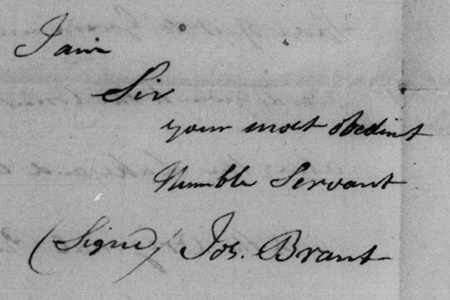 I am
Sir
your most obedint
Humble Servant
(Signd) Jos. Brant